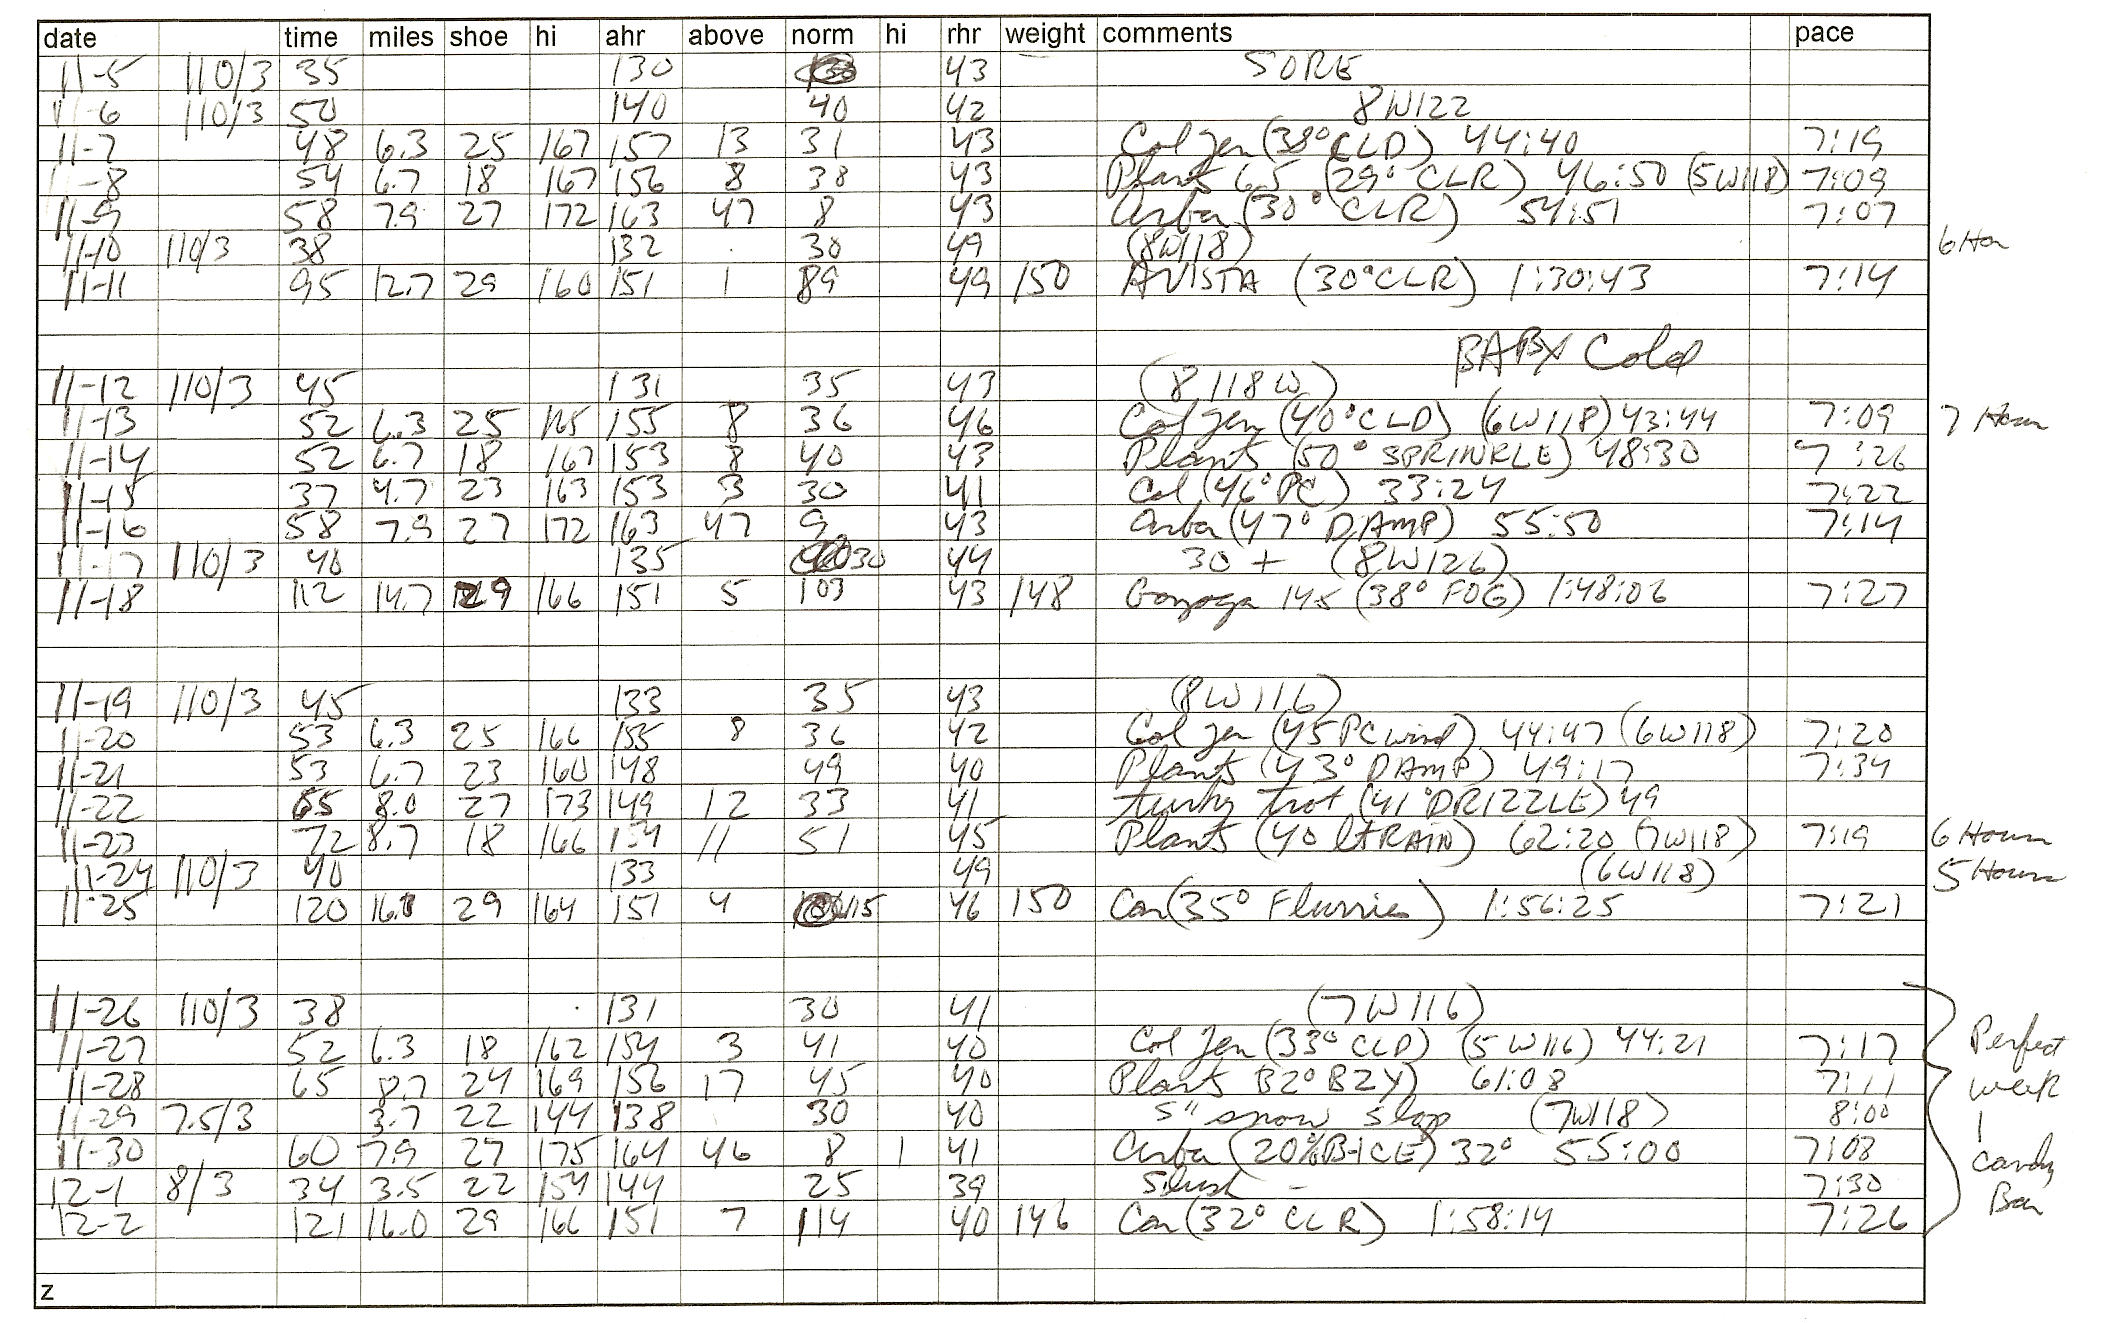 date time miles shoe hi ahr above norm hi rhr weight comments pace
11-5 110/3 35 130 43 SORE
11-6 110/3 50 140 40 42 8W122
11-7 48 6.3 25 167 157 13 31 43 Col Jen (38° CLD) 44:40 7:19
11-8 54 6.7 18 167 156 8 38 43 Plants 6.5 (29° CLR) 46:50 (5W118) 7:09
11-9 58 7.9 27 172 163 47 8 43 Arba (30° CLR) 54:51 7:07
11-10 110/3 38 132 30 49 (8W118) 6 Hou
11-11 95 12.7 29 160 151 1 89 49 150 AVISTA (30° CLR) 1:30:43 7:14
BABY Cold
11-12 110/3 45 131 35 43 (8 118W)
11-13 52 6.3 25 165 155 8 36 46 Col Jen (40° CLD) (6W118) 43:44 7:09 7 Hours
11-14 52 6.7 18 167 153 8 40 43 Plants (50° SPRINKLE) 48:30 7:26
11-15 37 4.7 23 163 153 3 30 41 Col (46° PC) 33:24 7:22
11-16 58 7.9 27 172 163 47 9 43 Arba (47° DAMP) 55:50 7:14
11-17 110/3 40 135 30 44 30 + (8W126)
11-18 112 14.7 29 166 151 5 103 43 148 14.5 (38° FOG) 1:48:06 7:27
11-19 110/3 45 133 35 43 (8W116)
11-20 53 6.3 25 166 155 8 36 42 Col Jen (45 PC wind) 44:47 (6W118) 7:20
11-21 53 6.7 23 160 148 49 40 Plants (43° DAMP) 49:17 7:34
11-22 65 8.0 27 173 149 12 33 41 turky trot (41° DRIZZLE) 49
11-23 72 8.7 18 166 11 51 45 Plants (40 lt RAIN) 62:20 (7W118) 7:19 6 Hours
11-24 110/3 40 133 49 (6W118) 5 Hours
11-25 120 29 164 151 4 115 46 150 Can (35° Flurries) 1:56:25 7:21
11-26 110/3 38 131 30 41 (7W116)
11-27 52 6.3 18 162 154 3 41 40 Col Jen (33° CLD) (5W116) 44:21 7:17
11-28 65 8.7 24 169 156 17 45 40 Plants 32° BZY) 61:08 7:11
11-29 7.5/3 3.7 22 144 138 30 40 5" snow slop (7W118) 8:00
11-30 60 7.9 27 175 164 46 8 1 41 Arba (20% B-ICE) 32° 55:00 7:08
12-1 8/3 34 3.5 22 154 144 25 39 Slush - 7:30
12-2 121 16.0 29 166 151 7 114 40 146 Can (32° CLR) 1:58:14 7:26
Perfect
week
1
candy
Bar
z